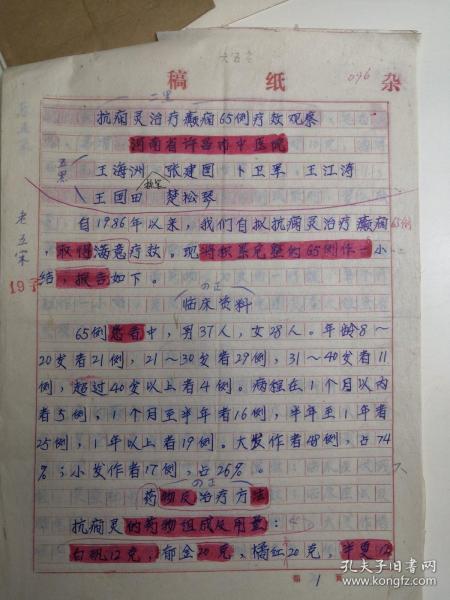 大五仿
稿 纸
096
杂
二黑
抗痫灵治疗癫痫65例疗效观察
河南省许昌市中医院
五黑
王海洲 张建国 卜卫军 王江涛
王国田 楚松琴
老五宋
自1986年以来，我们自拟抗痫灵治疗癫痫65例
，取得满意疗效。现将积累完整的65例作一小
结，报告如下。
の正
临床资料
65例患者中，男37人，女28人。年龄8～
20岁者21例，21～30岁者29例，31～40岁者11
例，超过40岁以上者4例。病程在1个月以内
者5例，1个月至半年者16例，半年至1年者
25例，1年以上者19例。大发作者48例，占74
%；小发作者17例，占26%。
の正
药物及治疗方法
抗痫灵的药物组成及用量：
白矾12克，郁金20克，橘红20克，半夏12
第 1 页
孔夫子旧书网
book.kongfz.com